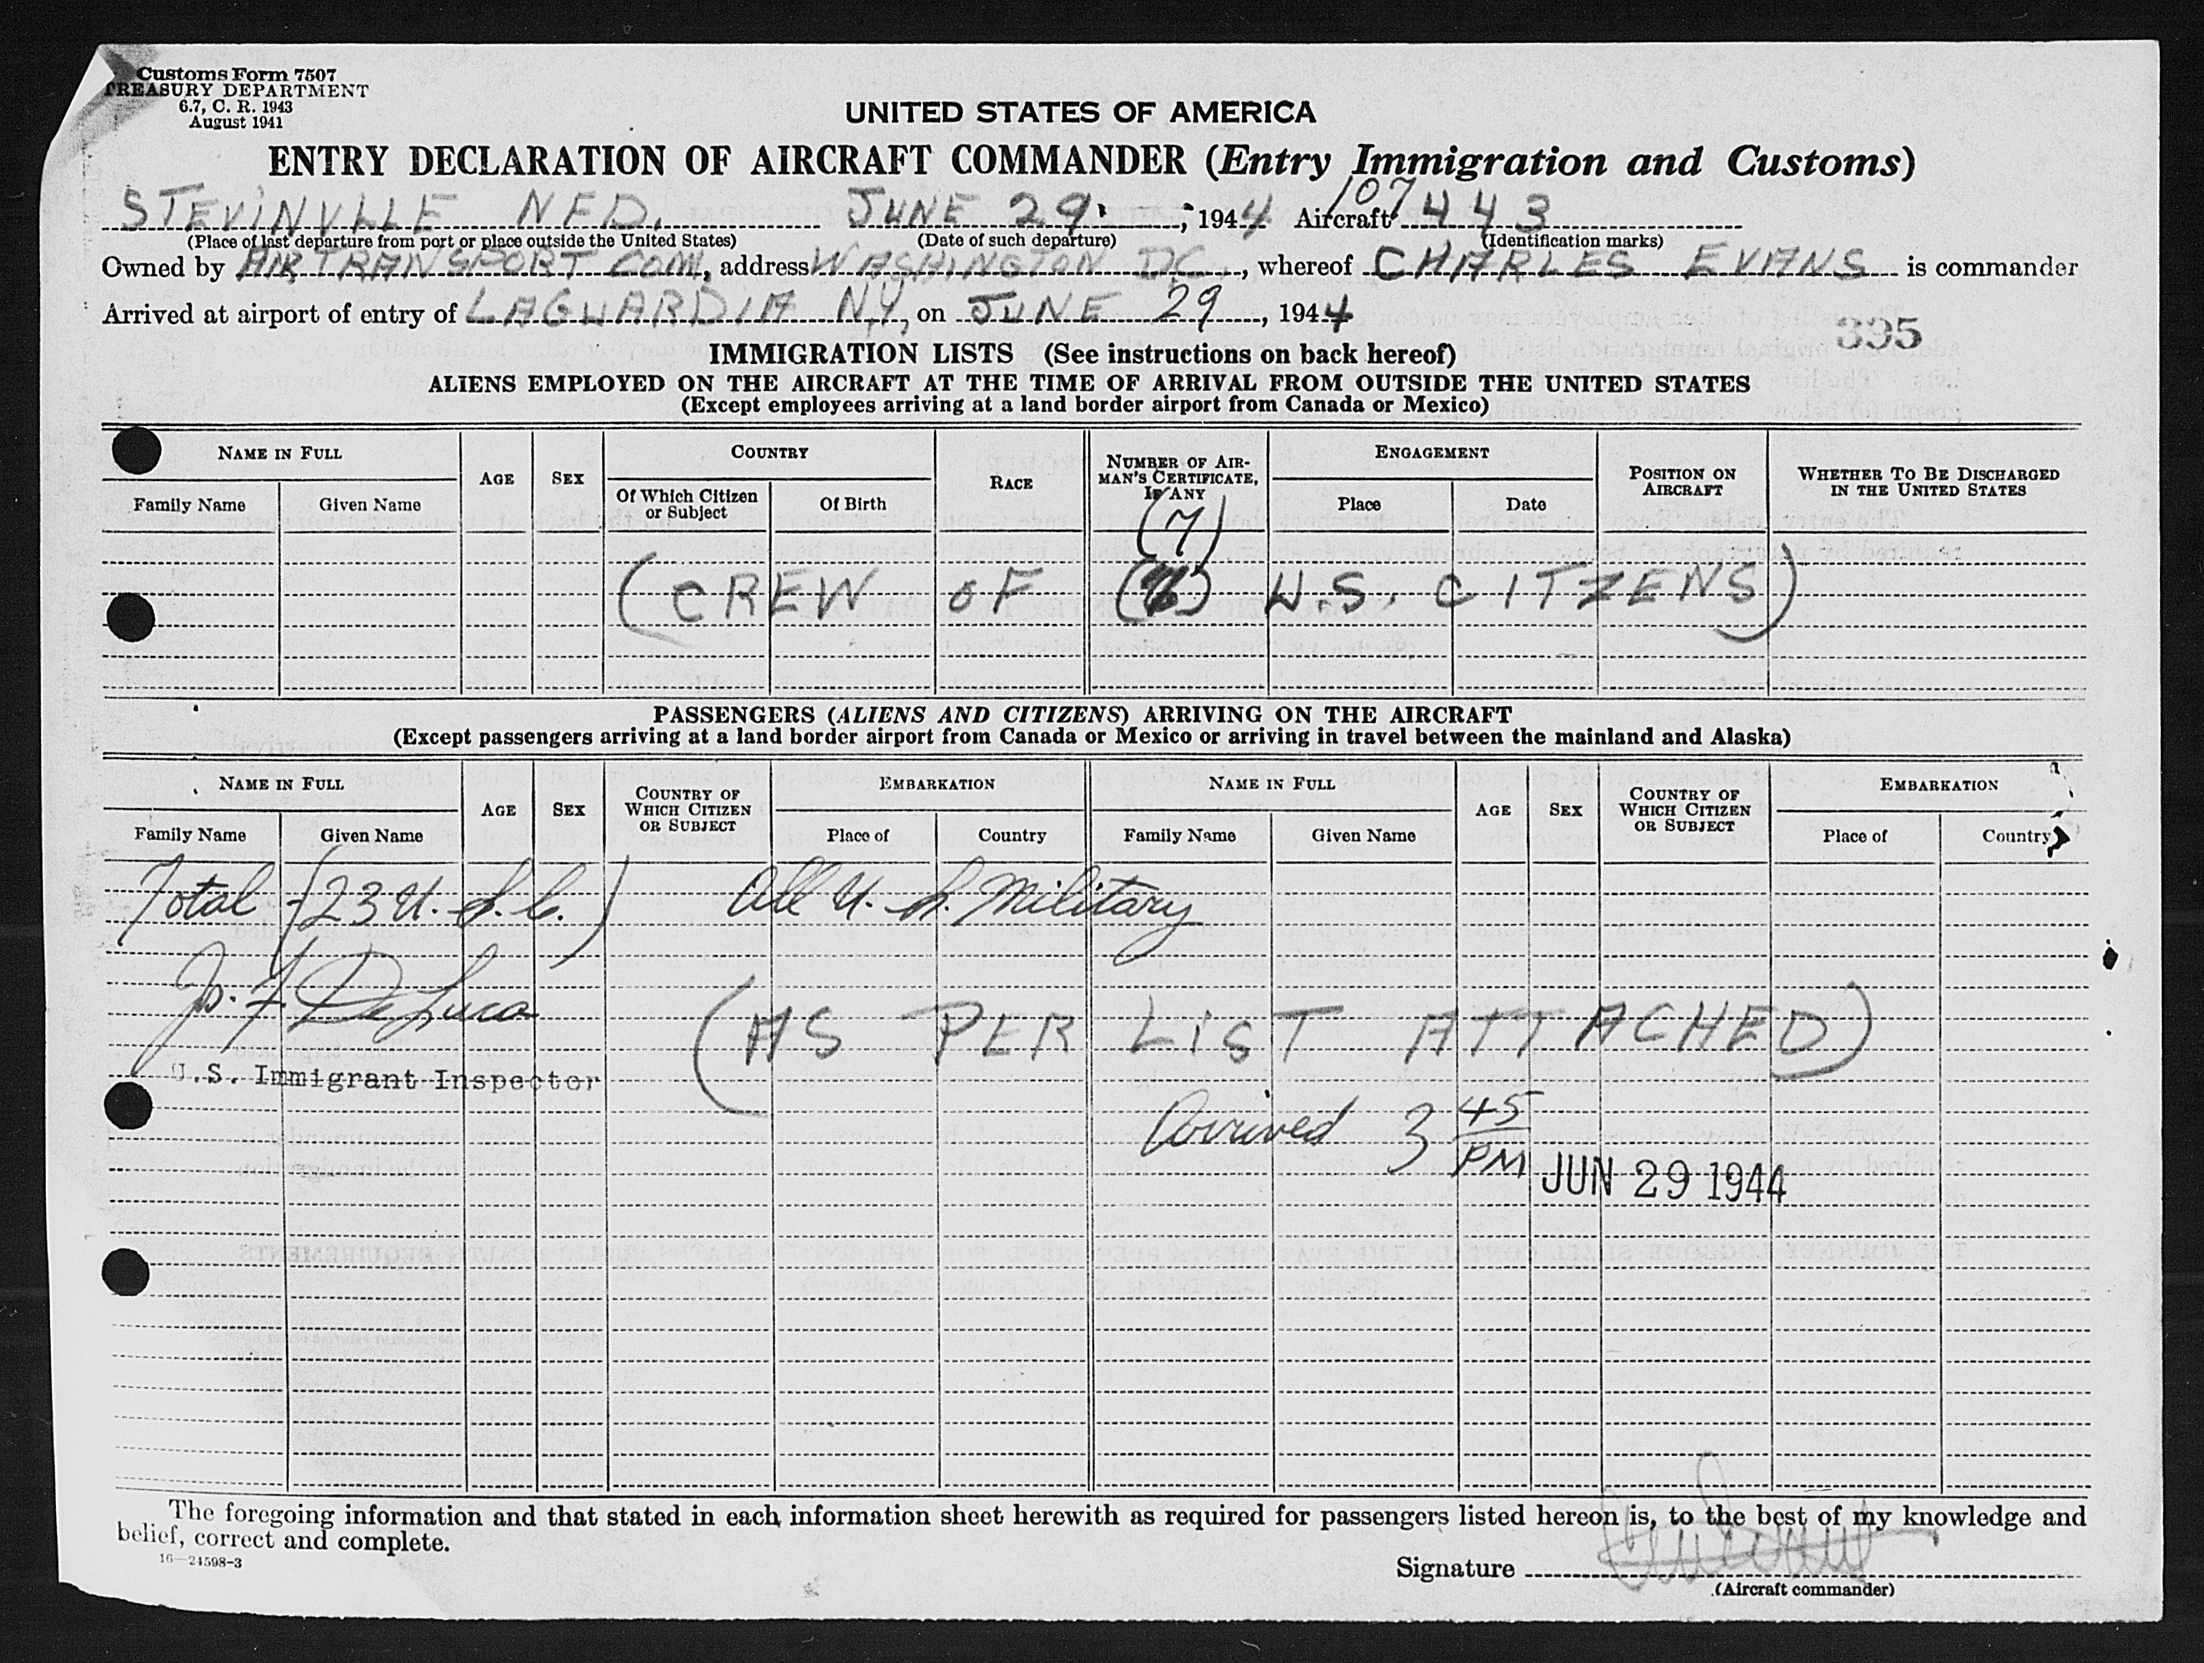 Customs Form 7507
TREASURY DEPARTMENT
6.7, C. R. 1943
August 1941
UNITED STATES OF AMERICA
ENTRY DECLARATION OF AIRCRAFT COMMANDER (Entry Immigration and Customs)
STEVINVLLE NFD. JUNE 29, 1944 Aircraft 107443
(Place of last departure from port or place outside the United States) (Date of such departure) (Identification marks)
Owned by AIR TRANSPORT COM., address WASHINGTON D.C., whereof CHARLES EVANS is commander
Arrived at airport of entry of LAGUARDIA N.Y., on JUNE 29, 1944
395
IMMIGRATION LISTS (See instructions on back hereof)
ALIENS EMPLOYED ON THE AIRCRAFT AT THE TIME OF ARRIVAL FROM OUTSIDE THE UNITED STATES
(Except employees arriving at a land border airport from Canada or Mexico)
NAME IN FULL AGE SEX COUNTRY RACE NUMBER OF AIRMAN'S CERTIFICATE, IF ANY ENGAGEMENT POSITION ON AIRCRAFT WHETHER TO BE DISCHARGED IN THE UNITED STATES
Family Name Given Name Of Which Citizen or Subject Of Birth Place Date
(7)
(CREW OF U.S. CITZENS)
PASSENGERS (ALIENS AND CITIZENS) ARRIVING ON THE AIRCRAFT
(Except passengers arriving at a land border airport from Canada or Mexico or arriving in travel between the mainland and Alaska)
NAME IN FULL AGE SEX COUNTRY OF WHICH CITIZEN OR SUBJECT EMBARKATION NAME IN FULL AGE SEX COUNTRY OF WHICH CITIZEN OR SUBJECT EMBARKATION
Family Name Given Name Place of Country Family Name Given Name Place of Country
Total (23 U.S.C.) All U.S. Military
Jo. F. DeLuca
(AS PER LIST ATTACHED)
U.S. Immigrant Inspector
Arrived 3 45 PM
JUN 29 1944
The foregoing information and that stated in each information sheet herewith as required for passengers listed hereon is, to the best of my knowledge and
belief, correct and complete.
16—24598-3
Signature
(Aircraft commander)